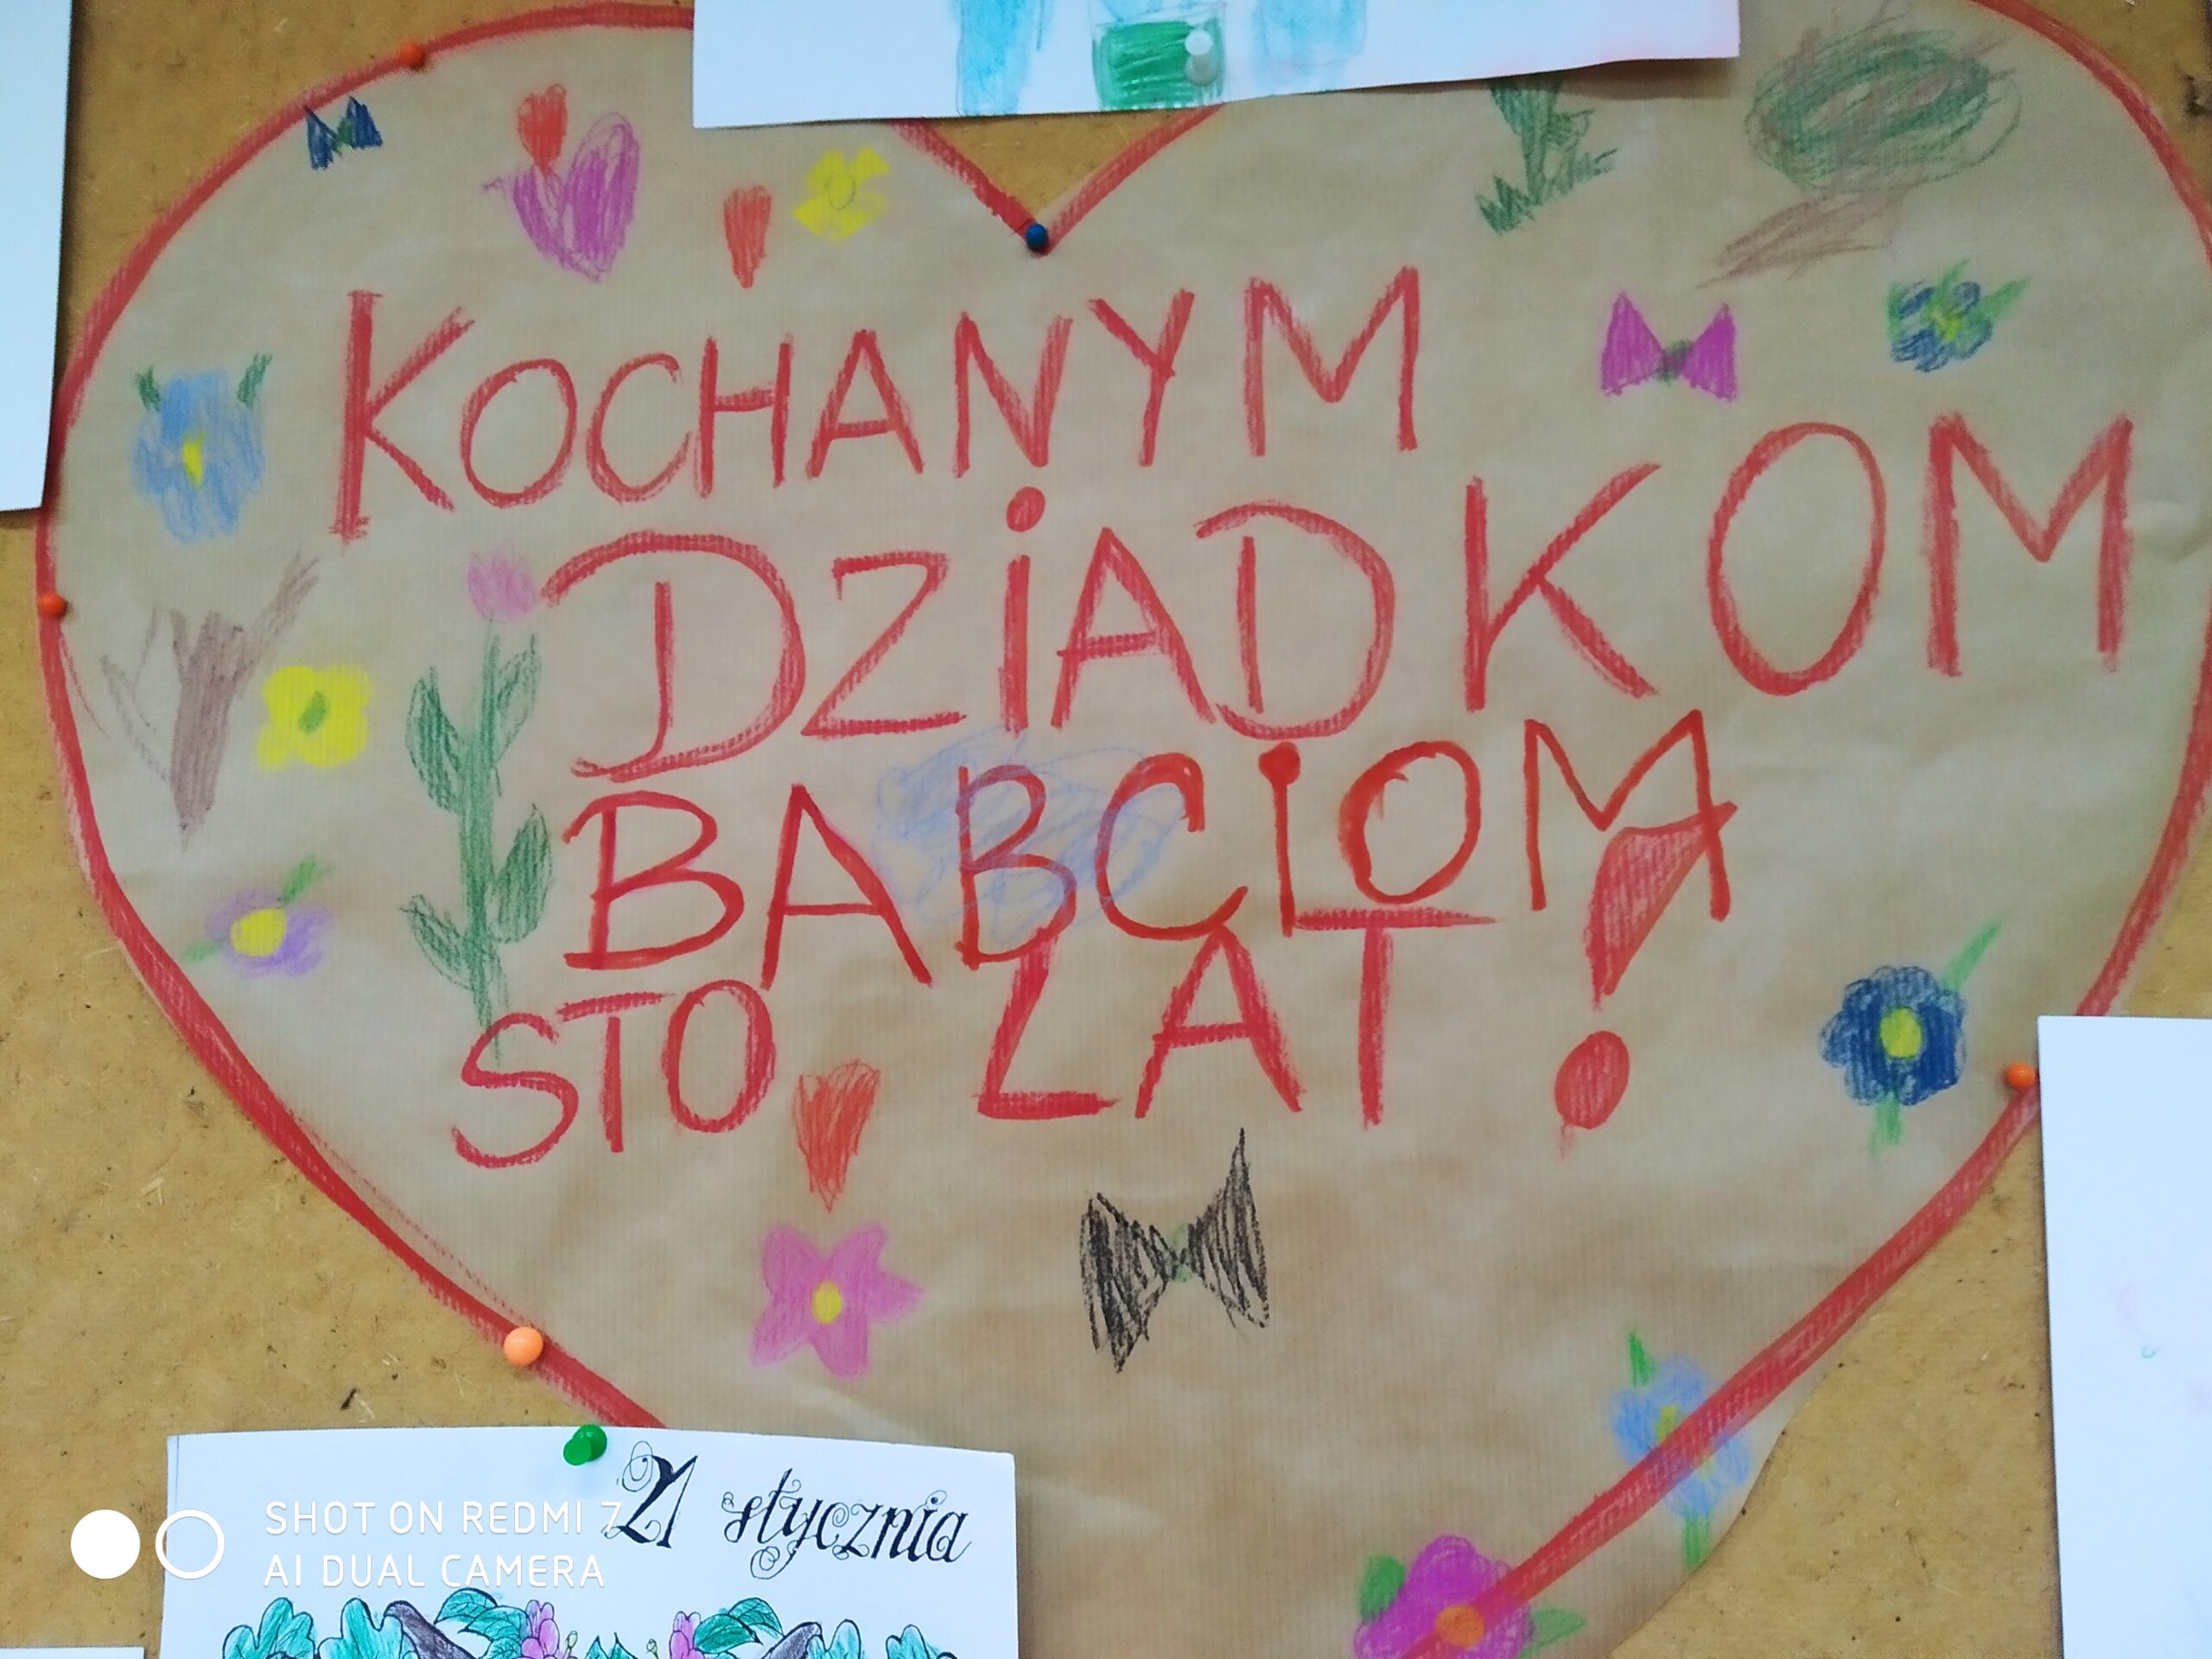 KOCHANYM
DZiADKOM
BABCiOM
STO LAT!
21 stycznia
SHOT ON REDMI 7
AI DUAL CAMERA